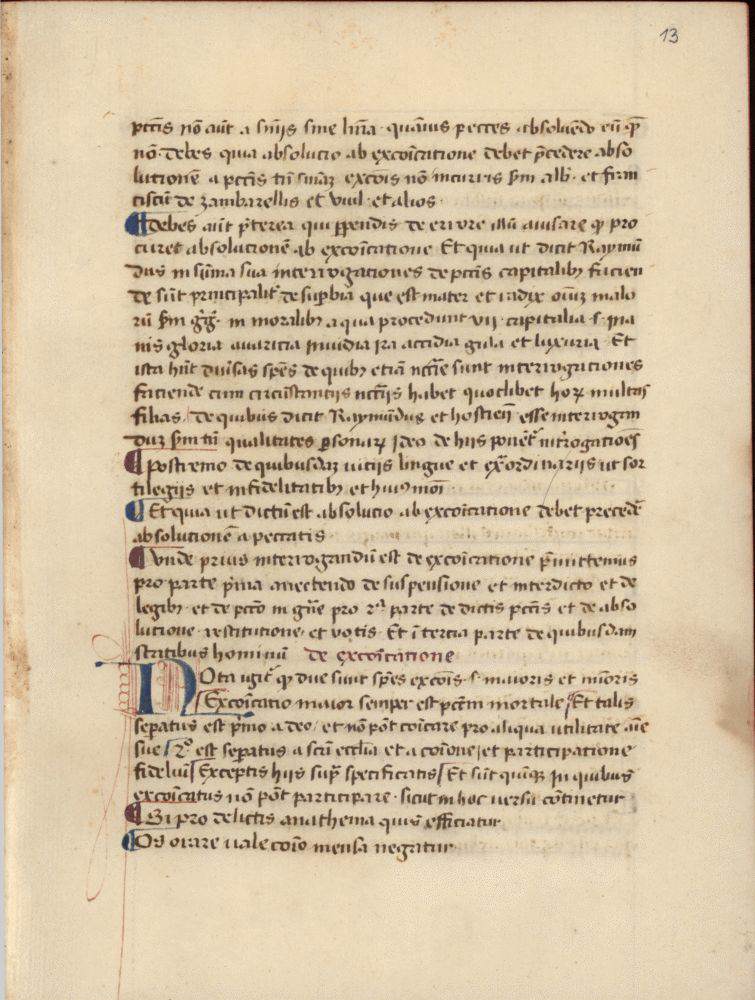 13
pctis nō aut a sniis sine lnia. quauis pecces absoluēdo eū qr
nō debes quia absolucio ab excoicatione debet pcedere abso
lutionē a pctis tn smaz excois nō incurris sm alb. et fran
ciscū de zambarellis et vvil. et alios.
Debes aut pterea qui ppendis de errore illū auisare q pro
curet absolucionē ab excoicatione Et quia ut dicit Raymū
dus in sūma sua interrogationes de pctis capitalib facien
de sūt principalit de supbia que est mater et radix oiuz malo
rū sm grg. in moralib a qua procedunt vii. capitalia .s. ina
nis gloria auaricia inuidia ira accidia gula et luxuria. Et
ista hūt diuisas spēs de quib etiā nccrie sunt interrogationes
faciende cum circūstantiis nccriis habet quodlibet hoꝝ multas
filias, de quibus dicit Raymūdus et hostien esse interrogan
duz sm tn qualitates psonarꝝ ideo de hiis ponēt introgatioēs
postremo de quibusdaz uitiis lingue et exordinariis ut sor
tilegiis et infidelitatib et huiomoi
Et quia ut dictū est absolucio ab excoicatione debet precedē
absolutionem a peccatis.
Vnde prius interrogandū est de excoicatione pmittemus
pro parte pma annectendo de suspensione et interdicto et de
legib. et de pcto in gne pro 2ª parte de dictis pctis et de abso
lutione. restitutione. et votis. Et ī tercia parte de quibusdam
statibus hominū de excoicatione
Nota igit q due sunt spēs excois .s. maioris et minoris
Excoicatio maior semper est pctm mortale, Et talis
sepatus est pmo a deo, et nō pōt coicare pro aliqua utilitate aie
sue 2º est sepatus a scn ecclia et a coione et participatione
fideliū Exceptis hiis supra specificatis Et sūt quinqz in quibus
excoicatus nō pōt participare. sicut in hoc uersu cōtinetur
Si pro delictis anathema quis efficiatur
Os orare uale coīo mensa negatur